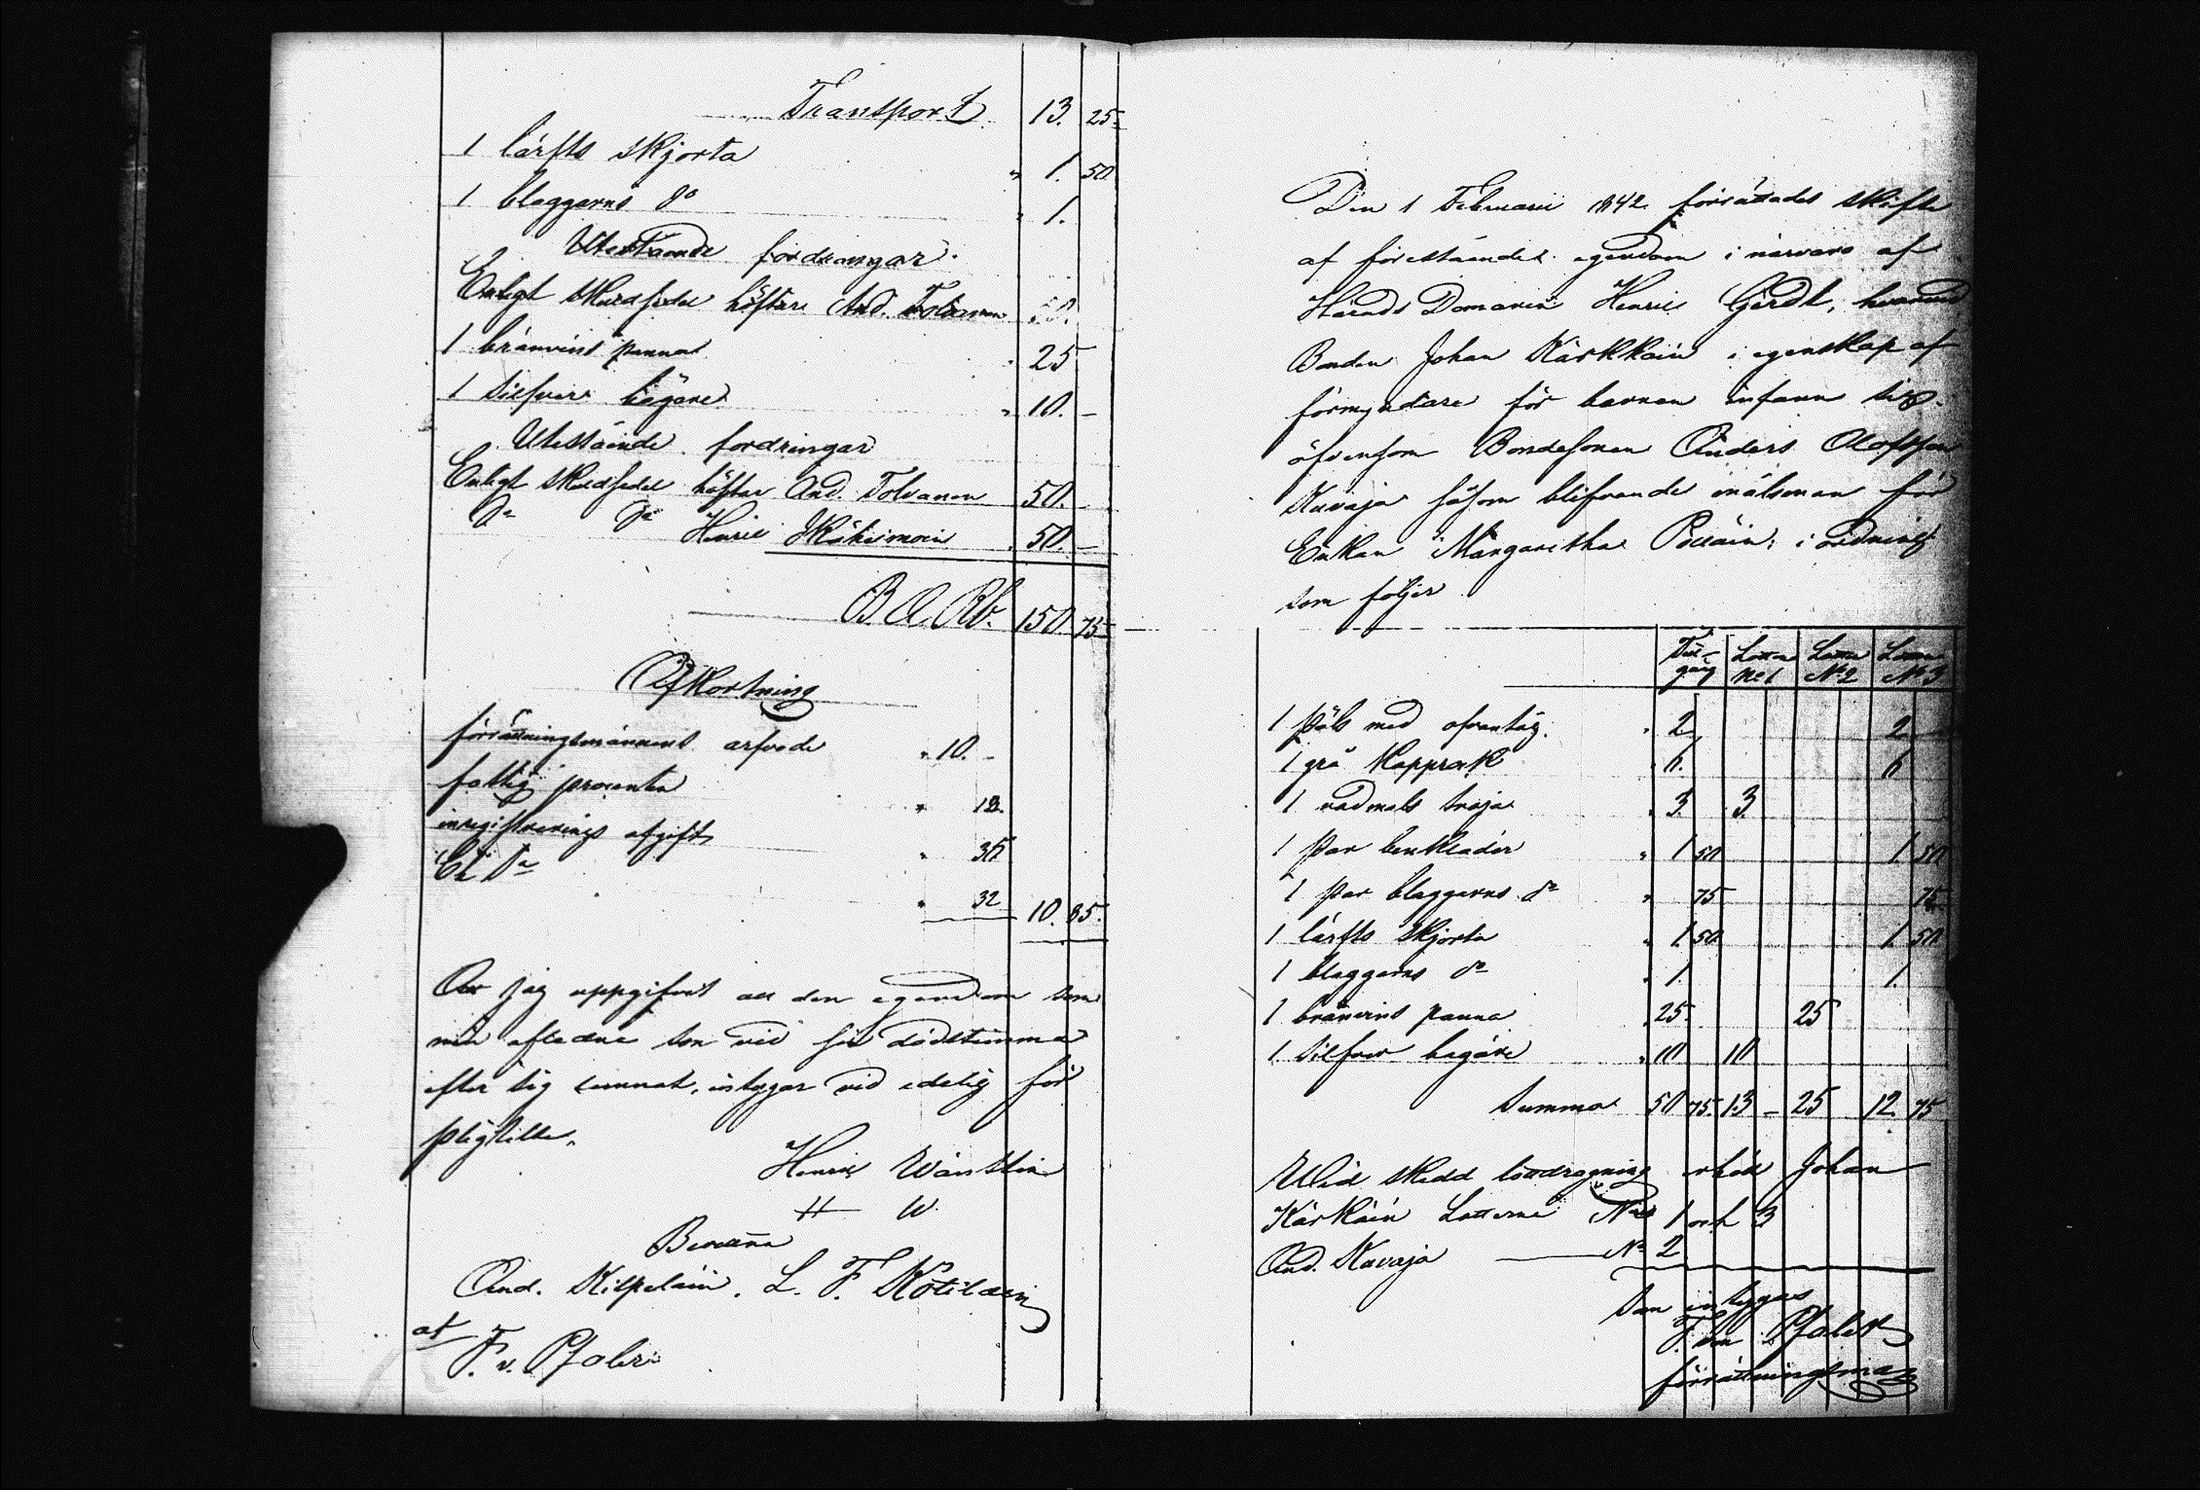 Transport 13. 25
1 lärfts skjorta " 1. 50
1 blaggarns do " 1.
Utestående fordringar.
Enligt skuldsedel häftar And. Tolvanen 50.
1 bränvins panna " 25
1 silfver bägare " 10. –
Utestående fordringar
Enligt skuldsedel häftar And. Tolvanen 50. –
Do Do Henric 50. –
B. A. Rb. 150. 75
Afkortning
förrättningsmännens arfvode " 10. –
fattig procenten "
inregistrerings afgift "
Do " 32 10. 85.
jag uppgifvit all den egendom som
min aflidne son vid sin dödstimma
efter sig lemnat, intygar vid edelig för
pligtelse.
Henric
H W
Bevittna
And. Kilpeläin. L. F. Kotilain
at F. v. Pfaler
Den 1 Februarii 1842 förrättades skifte
af förestående egendom i närvaro af
Härads Domaren Henric hvarvid
Bonden Johan Kärkkäin i egenskap af
förmyndare för barnen infann sig
äfvensom Bondesonen Anders Olofsson
Kavaja såsom blifvande målsman för
Enkan Margaretha i ordning
som följer
Till-gång Lotten No 1 Lotten No 2 Lotten No 3
1 päls med " 2 2
1 grå kapprock " 6. 6
1 vadmals tröja " 3. 3.
1 par benkläder " 1 50 1. 50
1 par blaggarns do " 75 75
1 lärfts skjorta " 1. 50 1. 50
1 blaggarns do " 1. 1.
1 bränvins panna " 25. 25
1 silfver bägare " 10 10
Summa 50 75. 13 – 25 12. 75
Wid skedd lottdragning erhöll Johan
Kärkäin Lotterne No 1 och 3
And. Kavaja No 2
Som intygas
F. von Pfaler
förrättningsman